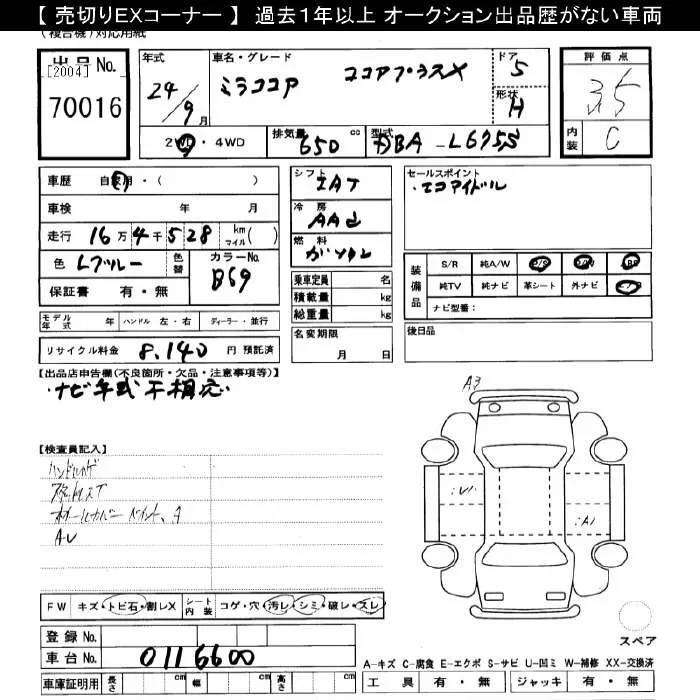 【 売切りEXコーナー 】 過去1年以上 オークション出品歴がない車両
(複合機)対応用紙
出品 No.
[2004]
70016
年式
24/9月
車名・グレード
ミラココア ココアプラスX
ドア
5
形状
H
評価点
3.5
内装
C
2WD・4WD
排気量
650 cc
型式
DBA-L675S
車歴 自家用・( )
車検 年 月
走行 16万4千528 km マイル( )
色 Lブルー
色替
カラーNo.
B69
保証書 有・無
モデル年式 年 ハンドル 左・右 ディーラー・並行
リサイクル料金 8,140 円 預託済
シフト
IAT
冷房
AAC
燃料
ガソリン
乗車定員 名
積載量 kg
総重量 kg
名変期限
月 日
セールスポイント
・エコアイドル
装備品
S/R 純A/W P/S P/W
純TV 純ナビ 革シート 外ナビ
ナビ型番:
後日品
【出品店申告欄(不良箇所・欠品・注意事項等)】
・ナビ年式不相応
【検査員記入】
ハンドルスレ
ホイールカバー ペイント、A
AU
A3
A1
FW キズ・トビ石・割レX
シート内装 コゲ・穴・汚レ・シミ・破レ・スレ
登録 No.
車台 No. 0116600
車庫証明用 長さ cm 幅 cm 高さ cm
スペア
A-キズ C-腐食 E-エクボ S-サビ U-凹ミ W-補修 XX-交換済
工具 有・無 ジャッキ 有・無